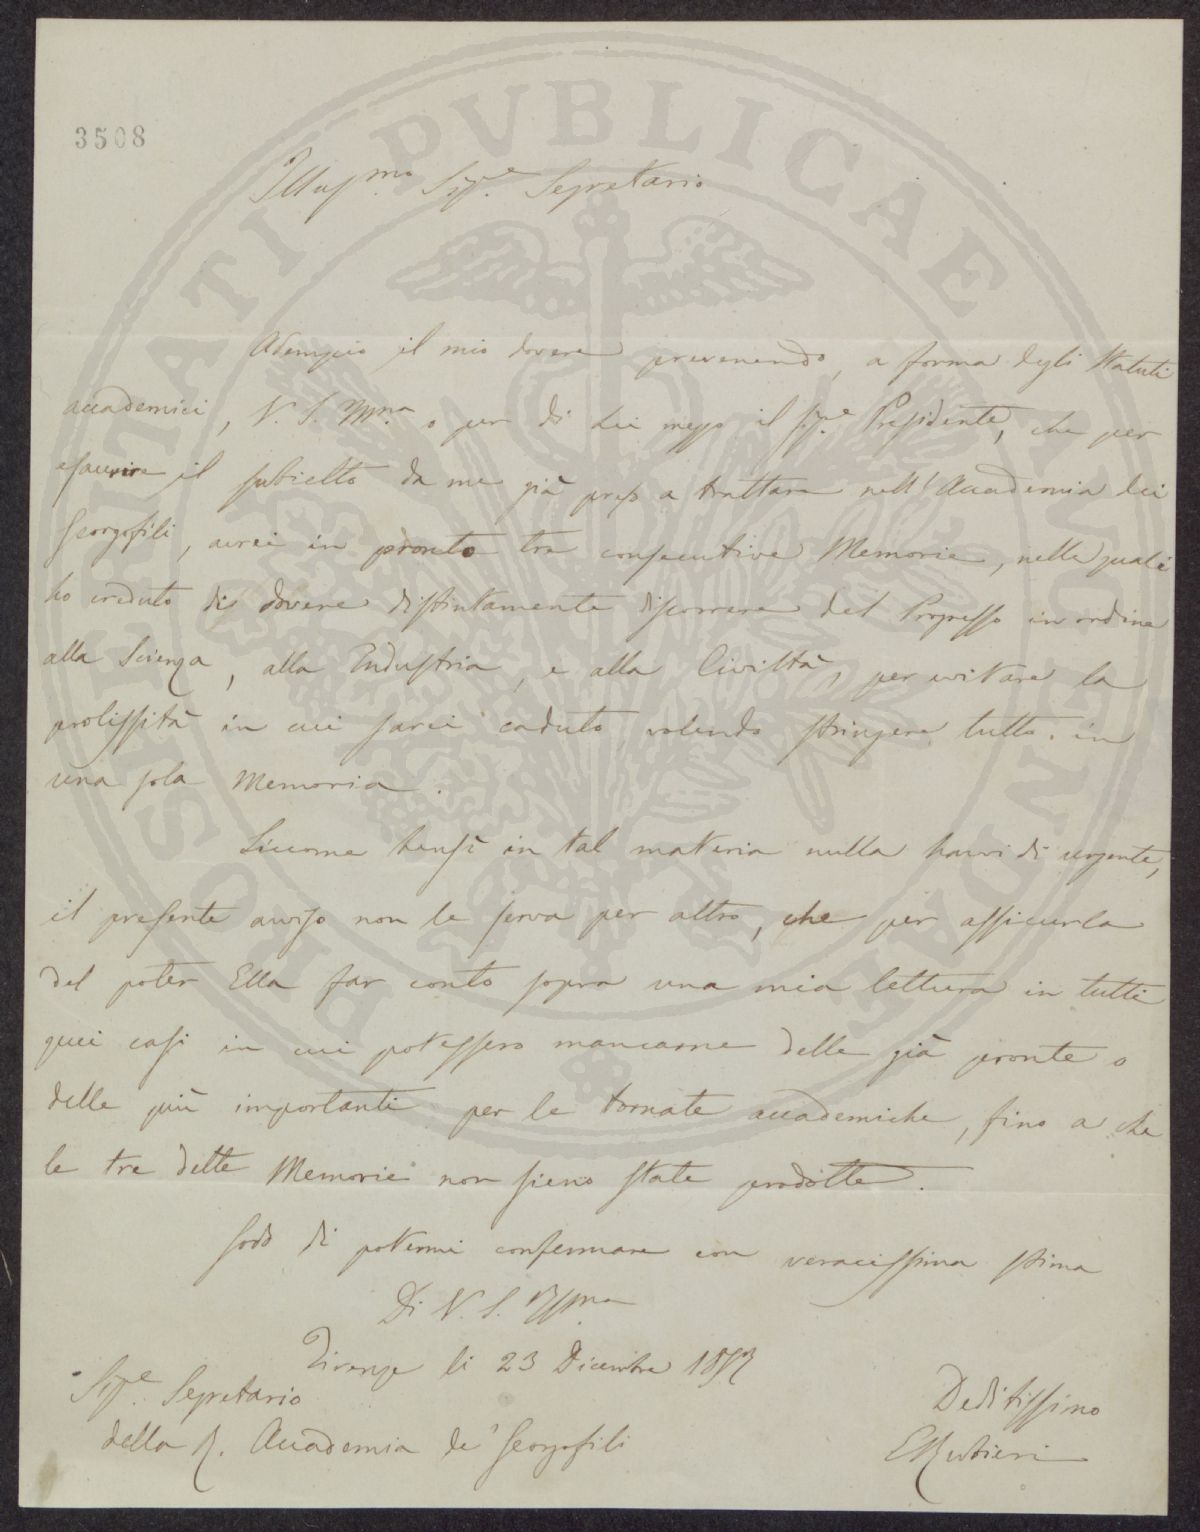 3508
Illus.mo Sig.e Segretario
Adempio il mio dovere prevenendo, a forma degli Statuti
accademici, V. S. Ill.ma o per di Lei mezzo il Sig.e Presidente, che per
esaurire il subietto da me già preso a trattare nell'Accademia dei
Georgofili, avrei in pronto tre consecutive Memorie, nelle quali
ho creduto di dovere distintamente discorrere del Progresso in ordine
alla Scienza, alla Industria, e alla Civiltà, per evitare la
prolissità in cui sarei caduto, volendo stringere tutto in
una sola Memoria.
Siccome bensì in tal materia nulla havvi di urgente,
il presente avviso non le serva per altro, che per assicurla
del poter Ella far conto sopra una mia lettura in tutti
quei casi in cui potessero mancarne delle già pronte o
delle più importanti per le tornate accademiche, fino a che
le tre dette Memorie non sieno state prodotte.
Godo di potermi confermare con veracissima stima
Di V. S. Ill.ma
Firenze li 23 Dicembre
Sig.e Segretario
della R. Accademia de' Georgofili
Deditissimo
ERubieri
PVBLICAE
PROSPERITATI